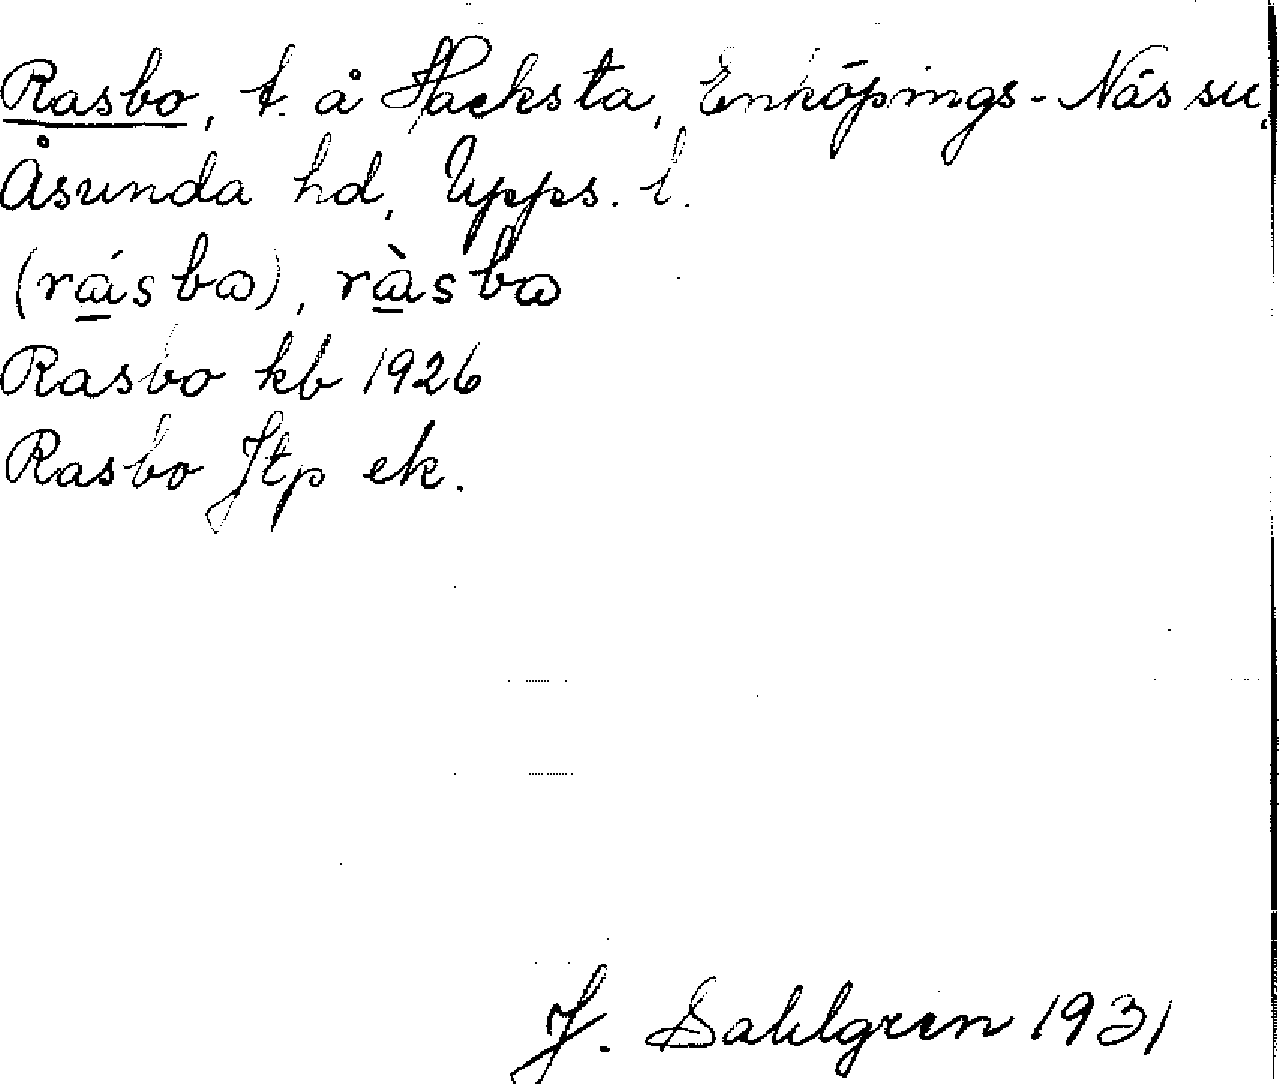 Rasbo, t. å Hacksta, Enköpings-Näs su,
Åsunda hd, Upps. l.
(rásbω), ràsbω
Rasbo kb 1926
Rasbo Jtp ek.
J. Sahlgren 1931